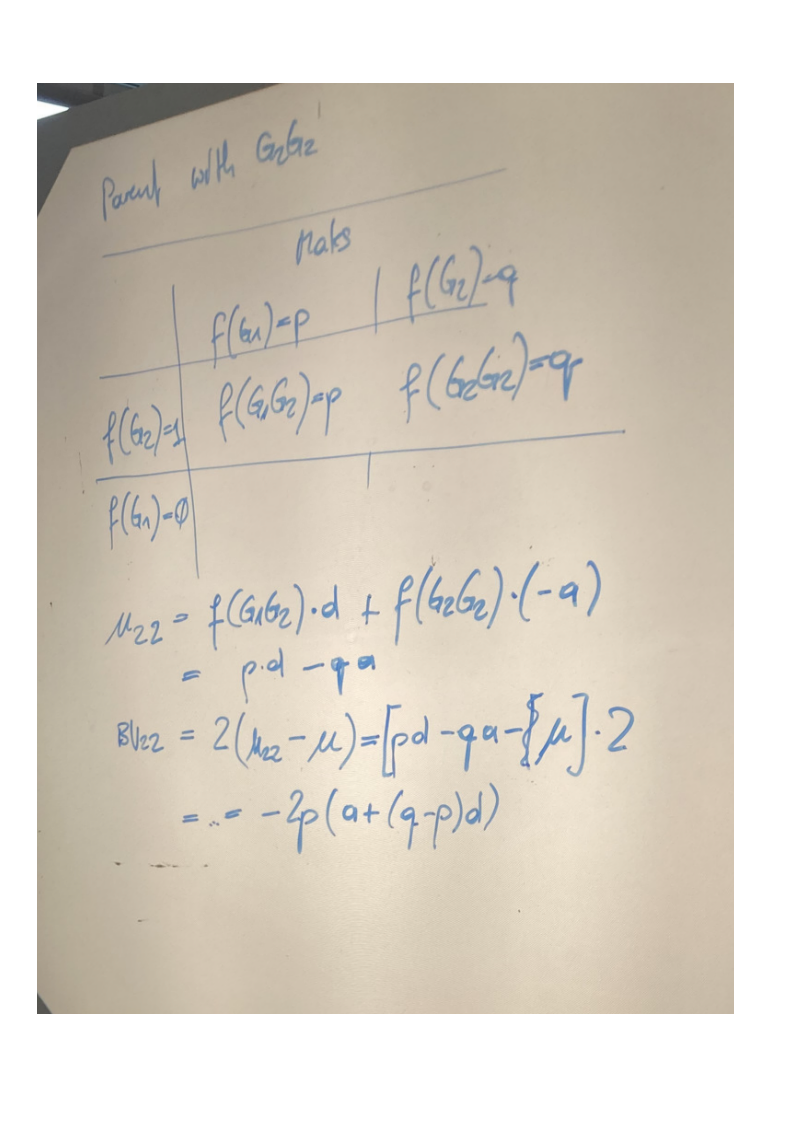 Parent with G₂G₂
Mates
f(G₁)=p | f(G₂)=q
f(G₂)=1 f(G₁G₂)=p f(G₂G₂)=q
f(G₁)=∅
μ₂₂ = f(G₁G₂)·d + f(G₂G₂)·(-a)
= p·d - qa
BV₂₂ = 2(μ₂₂ - μ) = [pd - qa - {μ]·2
= ..= -2p(a+(q-p)d)